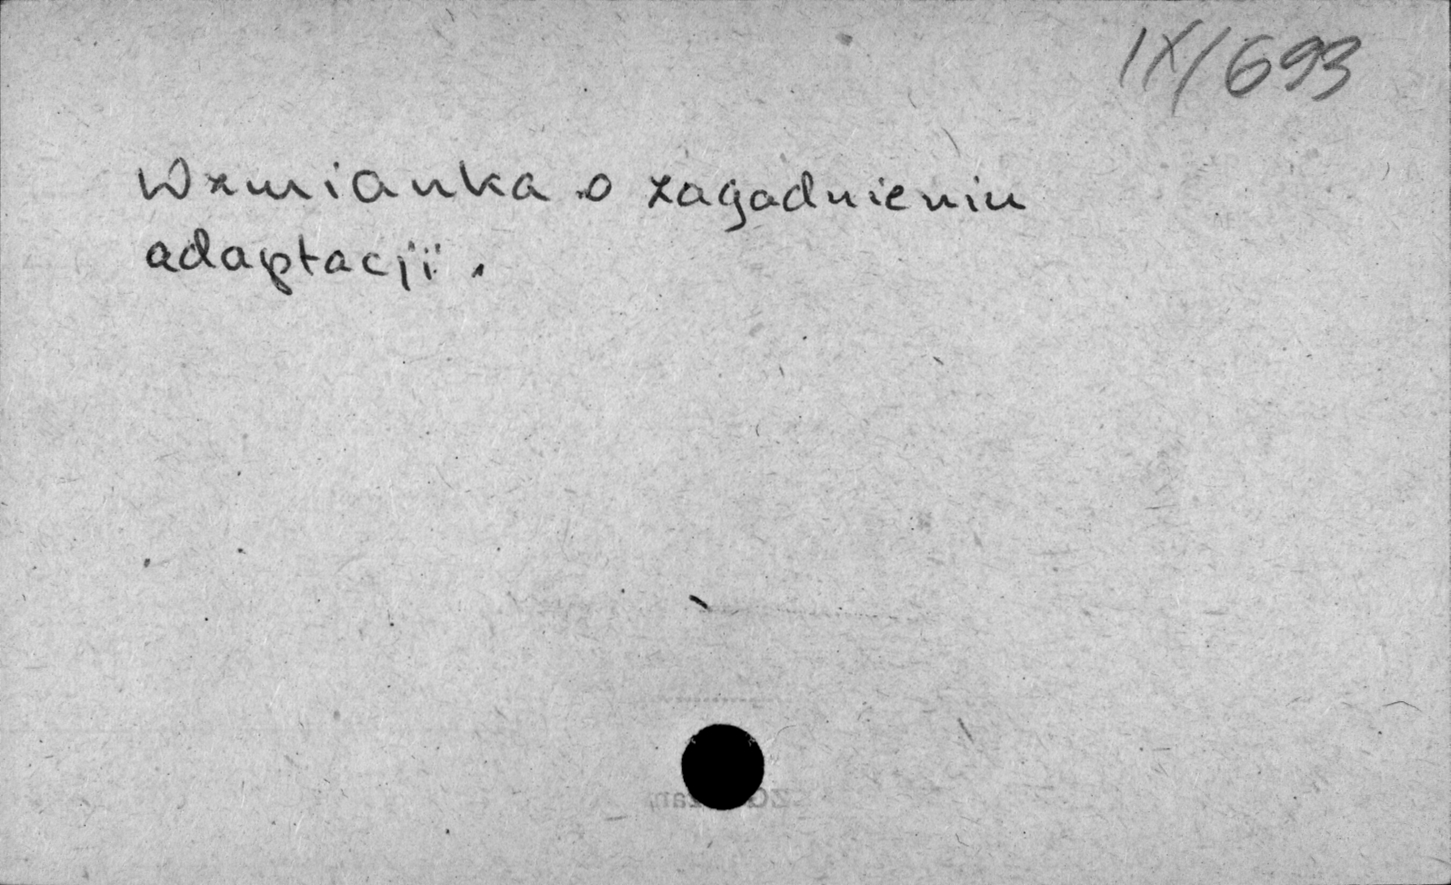 IX/693
Wzmianka o zagadnieniu
adaptacji.